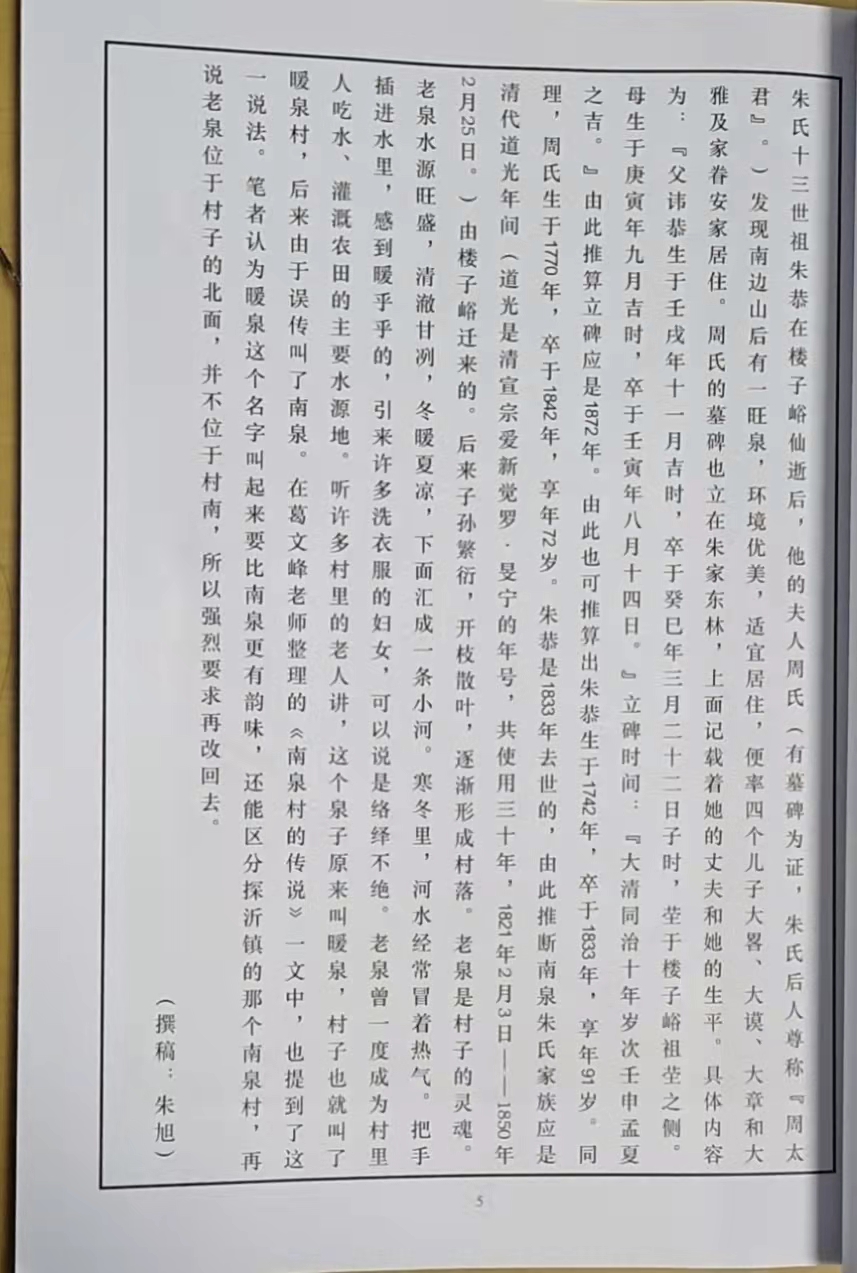 朱氏十三世祖朱恭在楼子峪仙逝后，他的夫人周氏（有墓碑为证，朱氏后人尊称『周太
君』。）发现南边山后有一旺泉，环境优美，适宜居住，便率四个儿子大畧、大谟、大章和大
雅及家眷安家居住。周氏的墓碑也立在朱家东林，上面记载着她的丈夫和她的生平。具体内容
为：『父讳恭生于壬戌年十一月吉时，卒于癸巳年三月二十二日子时，茔于楼子峪祖茔之侧。
母生于庚寅年九月吉时，卒于壬寅年八月十四日。』立碑时间：『大清同治十年岁次壬申孟夏
之吉。』由此推算立碑应是1872年。由此也可推算出朱恭生于1742年，卒于1833年，享年91岁。同
理，周氏生于1770年，卒于1842年，享年72岁。朱恭是1833年去世的，由此推断南泉朱氏家族应是
清代道光年间（道光是清宣宗爱新觉罗·旻宁的年号，共使用三十年，1821年2月3日——1850年
2月25日。）由楼子峪迁来的。后来子孙繁衍，开枝散叶，逐渐形成村落。老泉是村子的灵魂。
老泉水源旺盛，清澈甘冽，冬暖夏凉，下面汇成一条小河。寒冬里，河水经常冒着热气。把手
插进水里，感到暖乎乎的，引来许多洗衣服的妇女，可以说是络绎不绝。老泉曾一度成为村里
人吃水、灌溉农田的主要水源地。听许多村里的老人讲，这个泉子原来叫暖泉，村子也就叫了
暖泉村，后来由于误传叫了南泉。在葛文峰老师整理的《南泉村的传说》一文中，也提到了这
一说法。笔者认为暖泉这个名字叫起来要比南泉更有韵味，还能区分探沂镇的那个南泉村，再
说老泉位于村子的北面，并不位于村南，所以强烈要求再改回去。
（撰稿：朱旭）
5